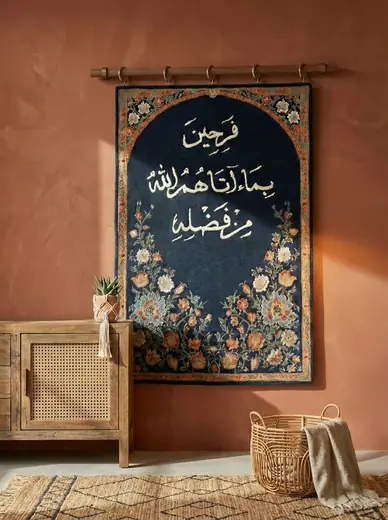 فَرِحِينَ
بِمَا ءَاتَاهُمُ اللهُ
مِن فَضْلِهِ